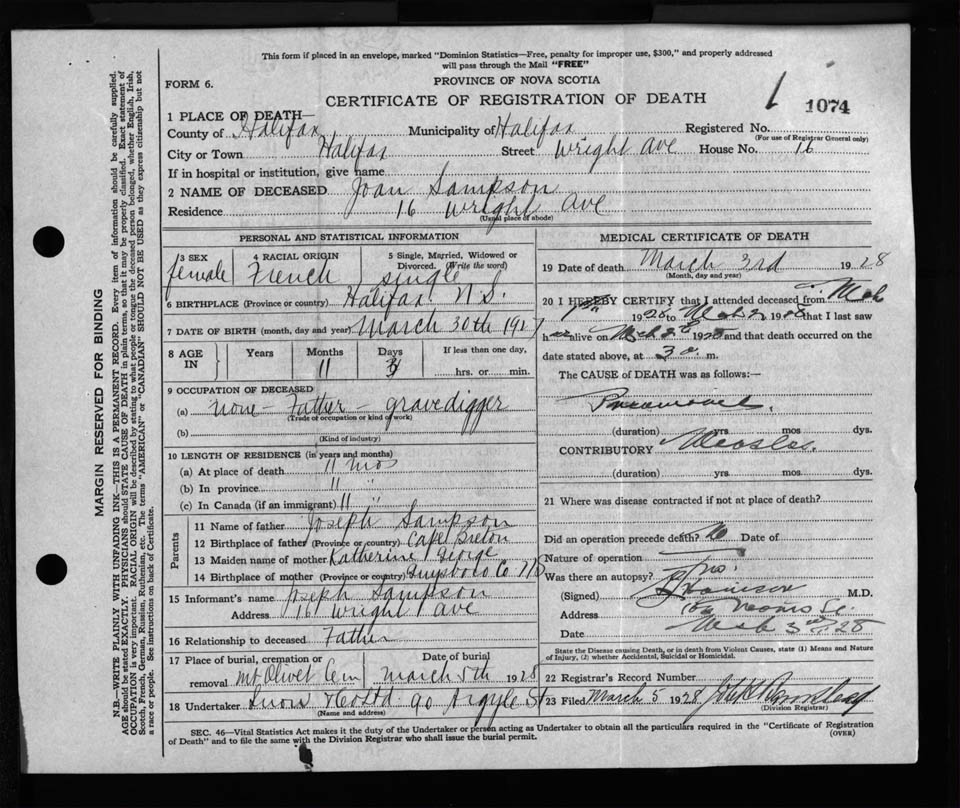 This form if placed in an envelope, marked "Dominion Statistics—Free, penalty for improper use, $300," and properly addressed
will pass through the Mail "FREE"
FORM 6.
PROVINCE OF NOVA SCOTIA
CERTIFICATE OF REGISTRATION OF DEATH
1 1074
1 PLACE OF DEATH—
County of Halifax Municipality of Halifax Registered No.
(For use of Registrar General only)
City or Town Halifax Street Wright Ave House No. 16
If in hospital or institution, give name
2 NAME OF DECEASED Joan Sampson
Residence 16 Wright Ave
(Usual place of abode)
PERSONAL AND STATISTICAL INFORMATION
3 SEX female
4 RACIAL ORIGIN French
5 Single, Married, Widowed or
Divorced. (Write the word)
single
6 BIRTHPLACE (Province or country) Halifax N.S.
7 DATE OF BIRTH (month, day and year) March 30th 1927
8 AGE IN
Years Months Days If less than one day,
11 3 hrs. or min.
9 OCCUPATION OF DECEASED
(a) none – Father – gravedigger
(Trade of occupation or kind of work)
(b)
(Kind of industry)
10 LENGTH OF RESIDENCE (in years and months)
(a) At place of death 11 mos
(b) In province 11 "
(c) In Canada (if an immigrant) 11 "
Parents
11 Name of father Joseph Sampson
12 Birthplace of father (Province or country) Cape Breton
13 Maiden name of mother Katherine George
14 Birthplace of mother (Province or country) Guysboro Co NS
15 Informant's name Joseph Sampson
Address 16 Wright Ave
16 Relationship to deceased Father
17 Place of burial, cremation or Date of burial
removal Mt Olivet Cem March 5th 1928
18 Undertaker 90 Argyle St
(Name and address)
MEDICAL CERTIFICATE OF DEATH
19 Date of death March 3rd 1928
(Month, day and year)
20 I HEREBY CERTIFY that I attended deceased from Mch
1928 to Mch 2 1928 that I last saw
h er alive on Mch 2 1928 and that death occurred on the
date stated above, at 3 a. m.
The CAUSE of DEATH was as follows:—
Pneumonia
(duration) yrs mos dys.
CONTRIBUTORY Measles.
(duration) yrs mos dys.
21 Where was disease contracted if not at place of death?
Did an operation precede death? No Date of
Nature of operation
Was there an autopsy? No.
(Signed) M.D.
Address
Date Mch 3rd 28
State the Disease causing Death, or in death from Violent Causes, state (1) Means and Nature
of Injury, (2) whether Accidental, Suicidal or Homicidal.
22 Registrar's Record Number
23 Filed March 5 1928
(Division Registrar)
SEC. 46—Vital Statistics Act makes it the duty of the Undertaker or person acting as Undertaker to obtain all the particulars required in the "Certificate of Registration
of Death" and to file the same with the Division Registrar who shall issue the burial permit.
(OVER)
MARGIN RESERVED FOR BINDING
N.B.—WRITE PLAINLY WITH UNFADING INK—THIS IS A PERMANENT RECORD. Every item of information should be carefully supplied.
AGE should be stated EXACTLY. PHYSICIANS should STATE CAUSE OF DEATH in plain terms, so that it may be properly classified. Exact statement of
OCCUPATION is very important. RACIAL ORIGIN will be described by stating to what people or tongue the deceased person belonged, whether English, Irish,
Scotch, French, German, Russian, Ruthenian, etc. The terms "AMERICAN" or "CANADIAN" SHOULD NOT BE USED as they express citizenship but not
a race or people. See instructions on back of Certificate.